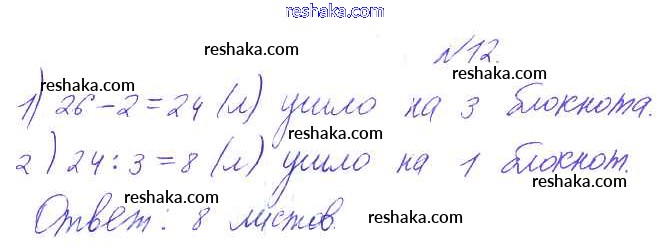 reshaka.com
№12.
reshaka.com reshaka.com reshaka.com
1) 26-2=24 (л) ушло на 3 блокнота.
reshaka.com reshaka.com
2) 24:3=8 (л) ушло на 1 блокнот.
reshaka.com reshaka.com
Ответ: 8 листов.
reshaka.com